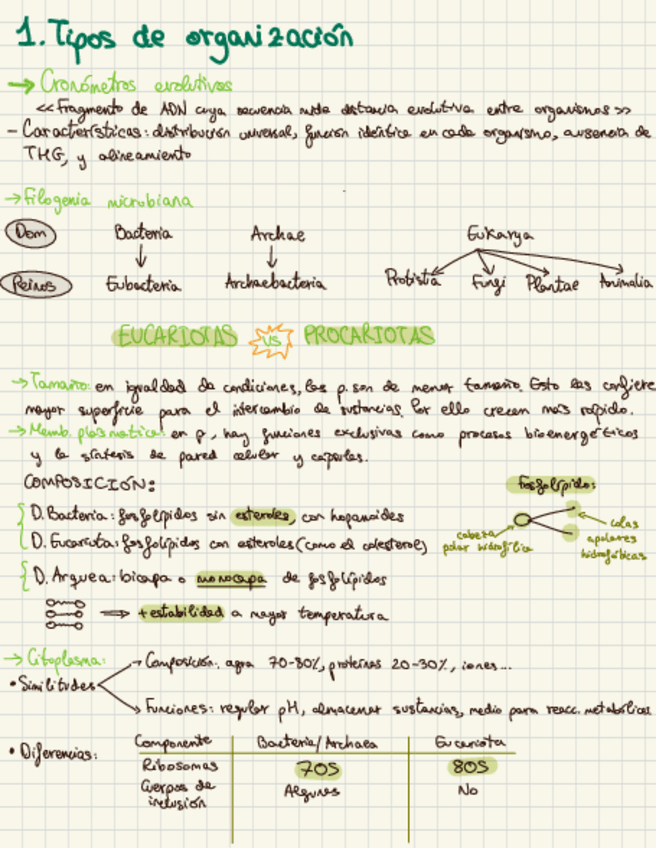 1. Tipos de organización
→ Cronómetros evolutivos
<<Fragmento de ADN cuya secuencia mide distancia evolutiva entre organismos>>
- Características: distribución universal, función idéntica en cada organismo, ausencia de
THG, y alineamiento
→ Filogenia microbiana
Dom Bacteria Archae Eukarya
Reinos Eubacteria Archaebacteria Protistia Fungi Plantae Animalia
EUCARIOTAS VS PROCARIOTAS
→ Tamaño: en igualdad de condiciones, las p. son de menor tamaño. Esto les confiere
mayor superficie para el intercambio de sustancias, Por ello crecen más rápido.
→ Memb. plasmática: en p, hay funciones exclusivas como procesos bioenergéticos
y la síntesis de pared celular y cápsulas.
COMPOSICIÓN:
Fosfolípido:
D. Bacteria: fosfolípidos sin esteroles, con hopanoides
D. Eucariota: fosfolípidos con esteroles (como el colesterol)
cabeza polar hidrofílica
colas apolares hidrofóbicas
D. Arquea: bicapa o monocapa de fosfolípidos
⇒ + estabilidad a mayor temperatura
→ Citoplasma:
• Similitudes
→ Composición: agua 70-80%, proteínas 20-30%, iones...
→ Funciones: regular pH, almacenar sustancias, medio para reacc. metabólicas
• Diferencias:
Componente Bacteria/Archaea Eucariota
Ribosomas 70S 80S
Cuerpos de inclusión Algunos No